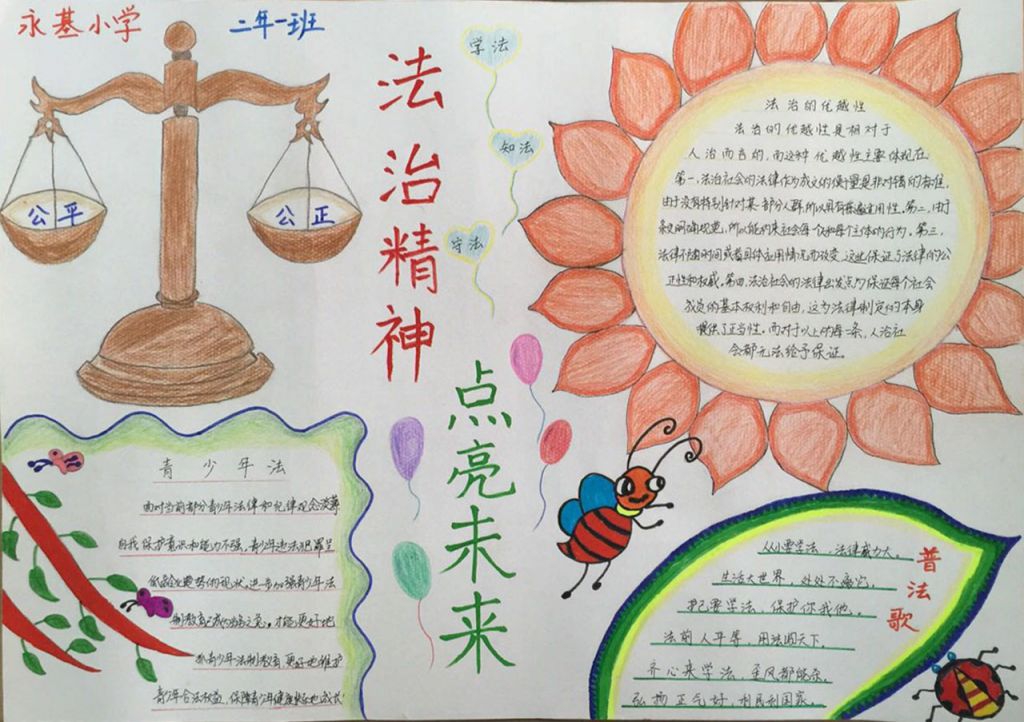 永基小学
二年一班
公平
公正
法治精神
点亮未来
学法
知法
守法
法治的优越性
法治的优越性是相对于
人治而言的,而这种优越性主要体现在
第一,法治社会的法律作为成文的衡量是非对错的标准,
由于没有特别针对某一部分人群,所以具有普遍适用性。第二,由于
明确规范,所以能约束社会每个体和每个主体的行为。第三,
法律不随时间或者具体应用情况而改变,这些保证了法律的公
正性和权威。第四,法治社会的法律出发点为保证每个社会
成员的基本权利和自由,这为法律制定的本身
提供了正当性。而对于以上的每一条,人治社
会都无法给予保证。
青少年法
面对当前部分青少年法律和纪律观念淡薄
自我保护意识和能力不强,青少年违法犯罪呈
低龄化趋势的现状,进一步加强青少年法
制教育已成当务之急。才能更好地
抓青少年法制教育,更好地维护
青少年合法权益,保障青少年健康快乐地成长
普法歌
从小要学法,法律威力大。
生活大世界,处处不离它。
我已要学法,保护你我他。
法前人平等,用法圆天下。
齐心来学法,
弘扬正气好,利民利国家。